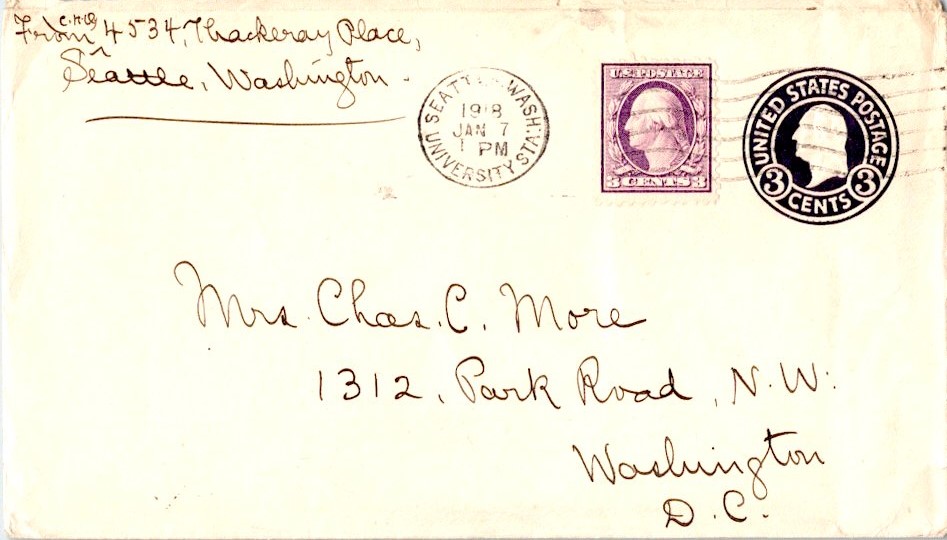 From 4534, Thackeray Place,
Seattle, Washington.
SEATTLE, WASH.
JAN 7
1 PM
UNIVERSITY STA.
U.S. POSTAGE
3 CENTS 3
UNITED STATES POSTAGE
3 CENTS 3
Mrs. Chas. C. More
1312, Park Road, N.W.
Washington
D.C.